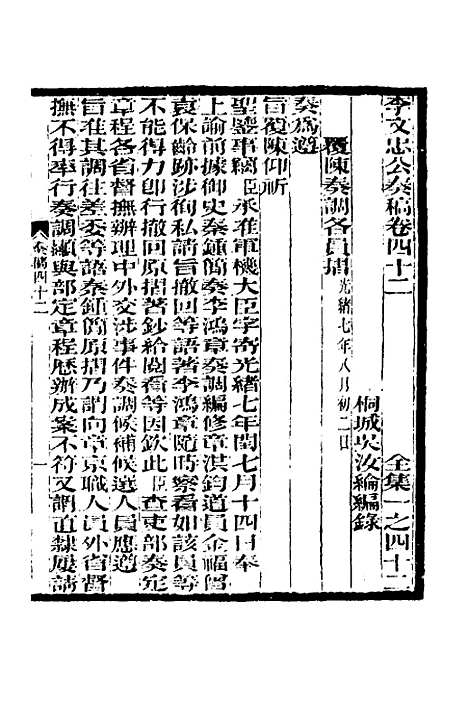 李文忠公奏稿卷四十二 全集一之四十二
桐城吳汝綸編錄
覆陳奏調各員摺光緒七年八月初二日
奏爲遵
旨覆陳仰祈
聖鑒事竊臣承准軍機大臣字寄光緒七年閏七月十四日奉
上諭前據御史秦鍾簡奏李鴻章奏調編修章洪鈞道員金福曾
袁保齡跡涉徇私請旨撤回等語著李鴻章隨時察看如該員等
不能得力卽行撤回原摺著鈔給閱看等因欽此臣查吏部奏定
章程各省督撫辦理中外交涉事件奏調候補候選人員應遵
旨准其調往差委等語秦鍾簡原摺乃謂向章京職人員外省督
撫不得率行奏調顯與部定章程歷辦成案不符又謂直隸屢請
奏稿四十二
一